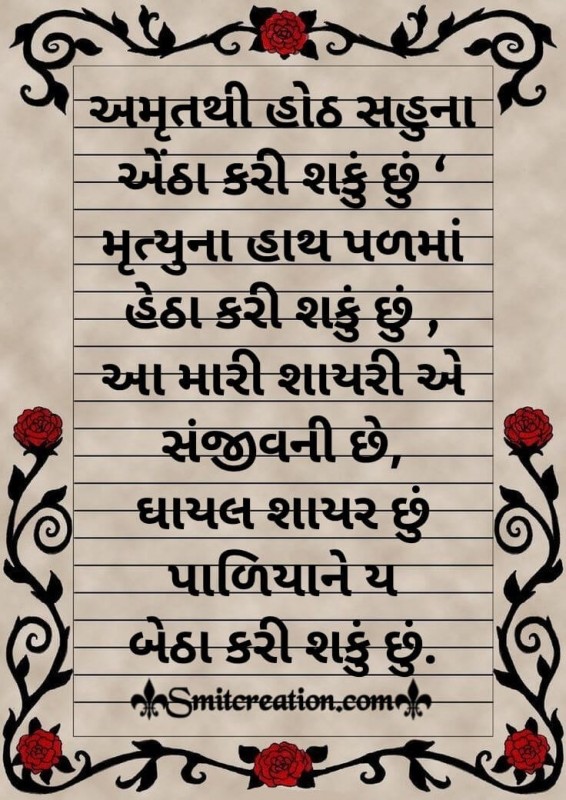 અમૃતથી હોઠ સહુના
એંઠા કરી શકું છું ‘
મૃત્યુના હાથ પળમાં
હેઠા કરી શકું છું ,
આ મારી શાયરી એ
સંજીવની છે,
ઘાયલ શાયર છું
પાળિયાને ય
બેઠા કરી શકું છું.
Smitcreation.com